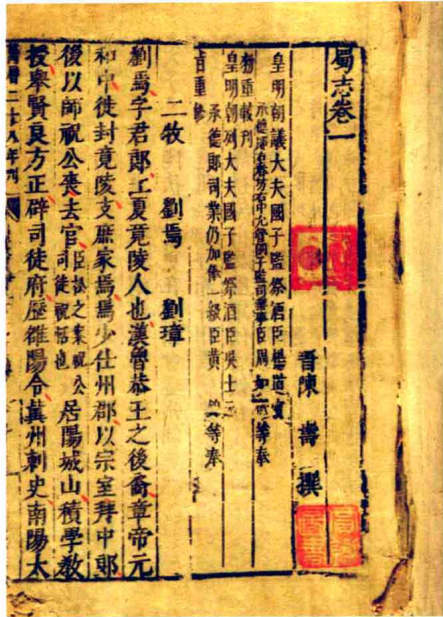 蜀志卷一
晋陳壽撰
皇明朝議大夫國子監祭酒臣楊道賓
承德郎右春坊右中允管國子監司業事臣周如砥等奉
敕重較刊
皇明朝列大夫國子監祭酒臣吳士元
承德郎司業仍加俸一級臣黃錦等奉
旨重修
二牧 劉焉 劉璋
劉焉字君郎江夏竟陵人也漢魯恭王之後裔章帝元
和中徙封竟陵支庶家焉焉少仕州郡以宗室拜中郎
後以師祝公喪去官臣松之案祝公司徒祝恬也居陽城山積學教
授舉賢良方正辟司徒府歷雒陽令冀州刺史南陽太
萬曆二十八年刊